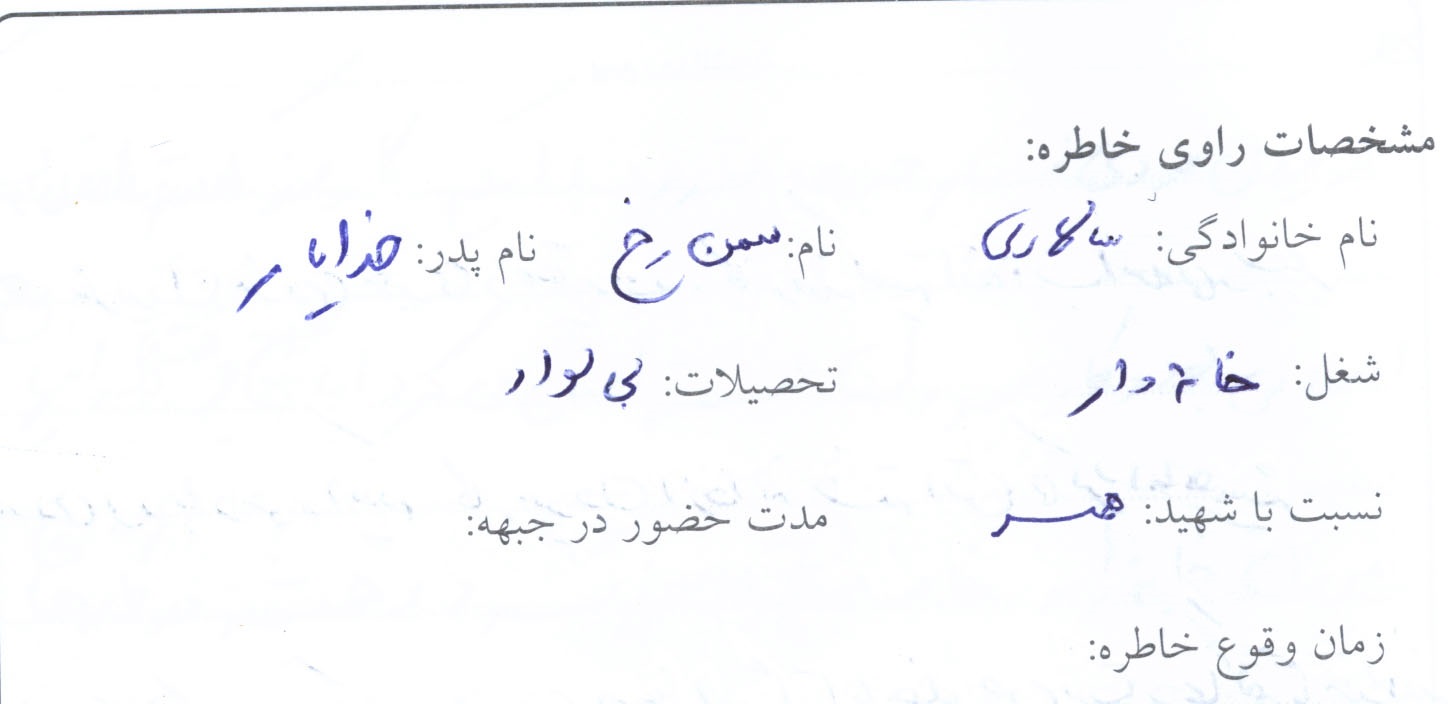 مشخصات راوی خاطره:
نام خانوادگی: سالاری نام: سمن رخ نام پدر: خدایار
شغل: خانه دار تحصیلات: بی سواد
نسبت با شهید: همسر مدت حضور در جبهه:
زمان وقوع خاطره: